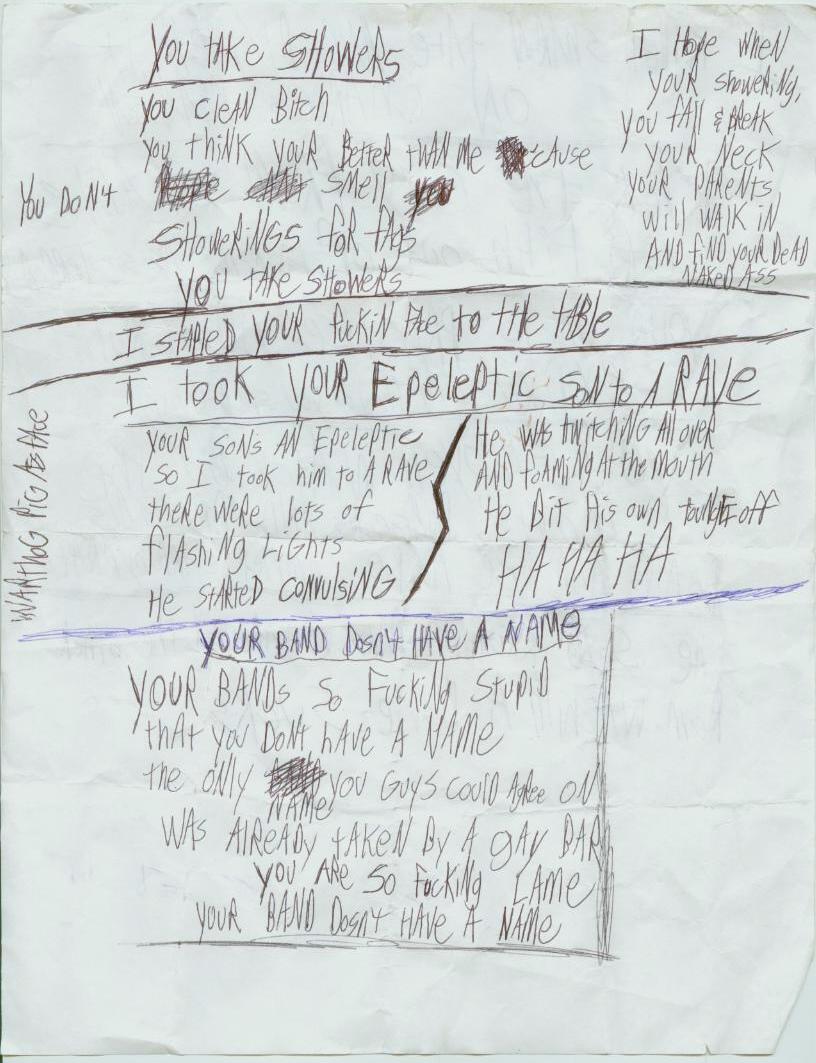 YOU TAKE SHOWERS
YOU CLEAN BITCH
YOU THINK YOUR BETTER THAN ME CAUSE
YOU DON'T SMELL
SHOWERINGS FOR FAGS
YOU TAKE SHOWERS
I HOPE WHEN
YOUR SHOWERING,
YOU FALL & BREAK
YOUR NECK
YOUR PARENTS
WILL WALK IN
AND FIND YOUR DEAD
NAKED ASS
I STAPLED YOUR FUCKIN FACE TO THE TABLE
I TOOK YOUR EPELEPTIC SON TO A RAVE
YOUR SONS AN EPELEPTIC
SO I TOOK HIM TO A RAVE
THERE WERE LOTS OF
FLASHING LIGHTS
HE STARTED CONVULSING
HE WAS TWITCHING ALL OVER
AND FOAMING AT THE MOUTH
HE BIT HIS OWN TOUNGE OFF
HA HA HA
WARTHOG PIG ASS FACE
YOUR BAND DOSN'T HAVE A NAME
YOUR BANDS SO FUCKING STUPID
THAT YOU DONT HAVE A NAME
THE ONLY NAME YOU GUYS COULD AGREE ON
WAS ALREADY TAKEN BY A GAY BAR
YOU ARE SO FUCKING LAME
YOUR BAND DOSN'T HAVE A NAME